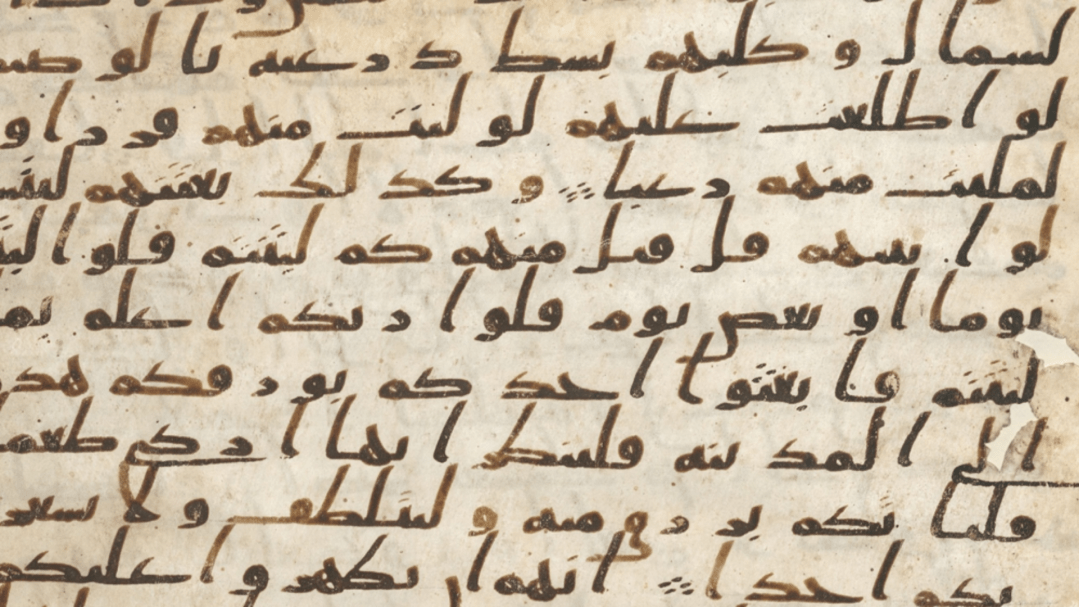 لشمال و كلبهم بسط ذرعيه بالوصيد
لو اطلعت عليهم لوليت منهم فرارا و
لملئت منهم رعبا و كذلك بعثنهم ليتسا
لوا بينهم قل قيل منهم كم لبثتم قلوا لبثنا
يوما او بعض يوم قلوا ربكم اعلم بما
لبثتم فابعثوا احدكم بورقكم هذه
الى المدينه فلينظر ايها ازكى طعما
فلياتكم برزق منه وليتلطف ولا يشعرن
بكم احدا انهم ان يظهروا عليكم